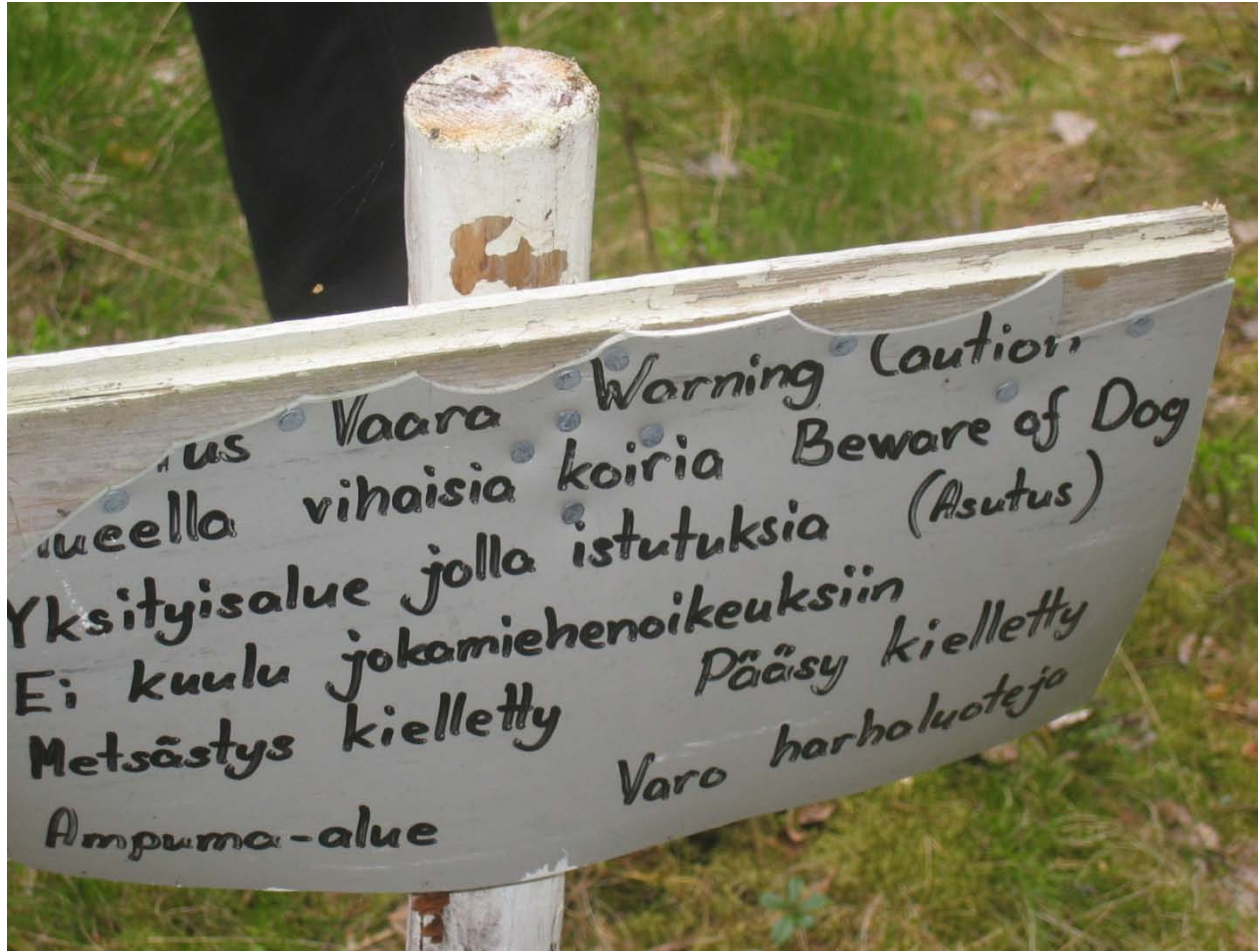 Vaara Warning Caution
vihaisia koiria Beware of Dog
Yksityisalue jolla istutuksia (Asutus)
Ei kuulu jokamiehenoikeuksiin
Metsästys kielletty Pääsy kielletty
Ampuma-alue Varo harhaluoteja